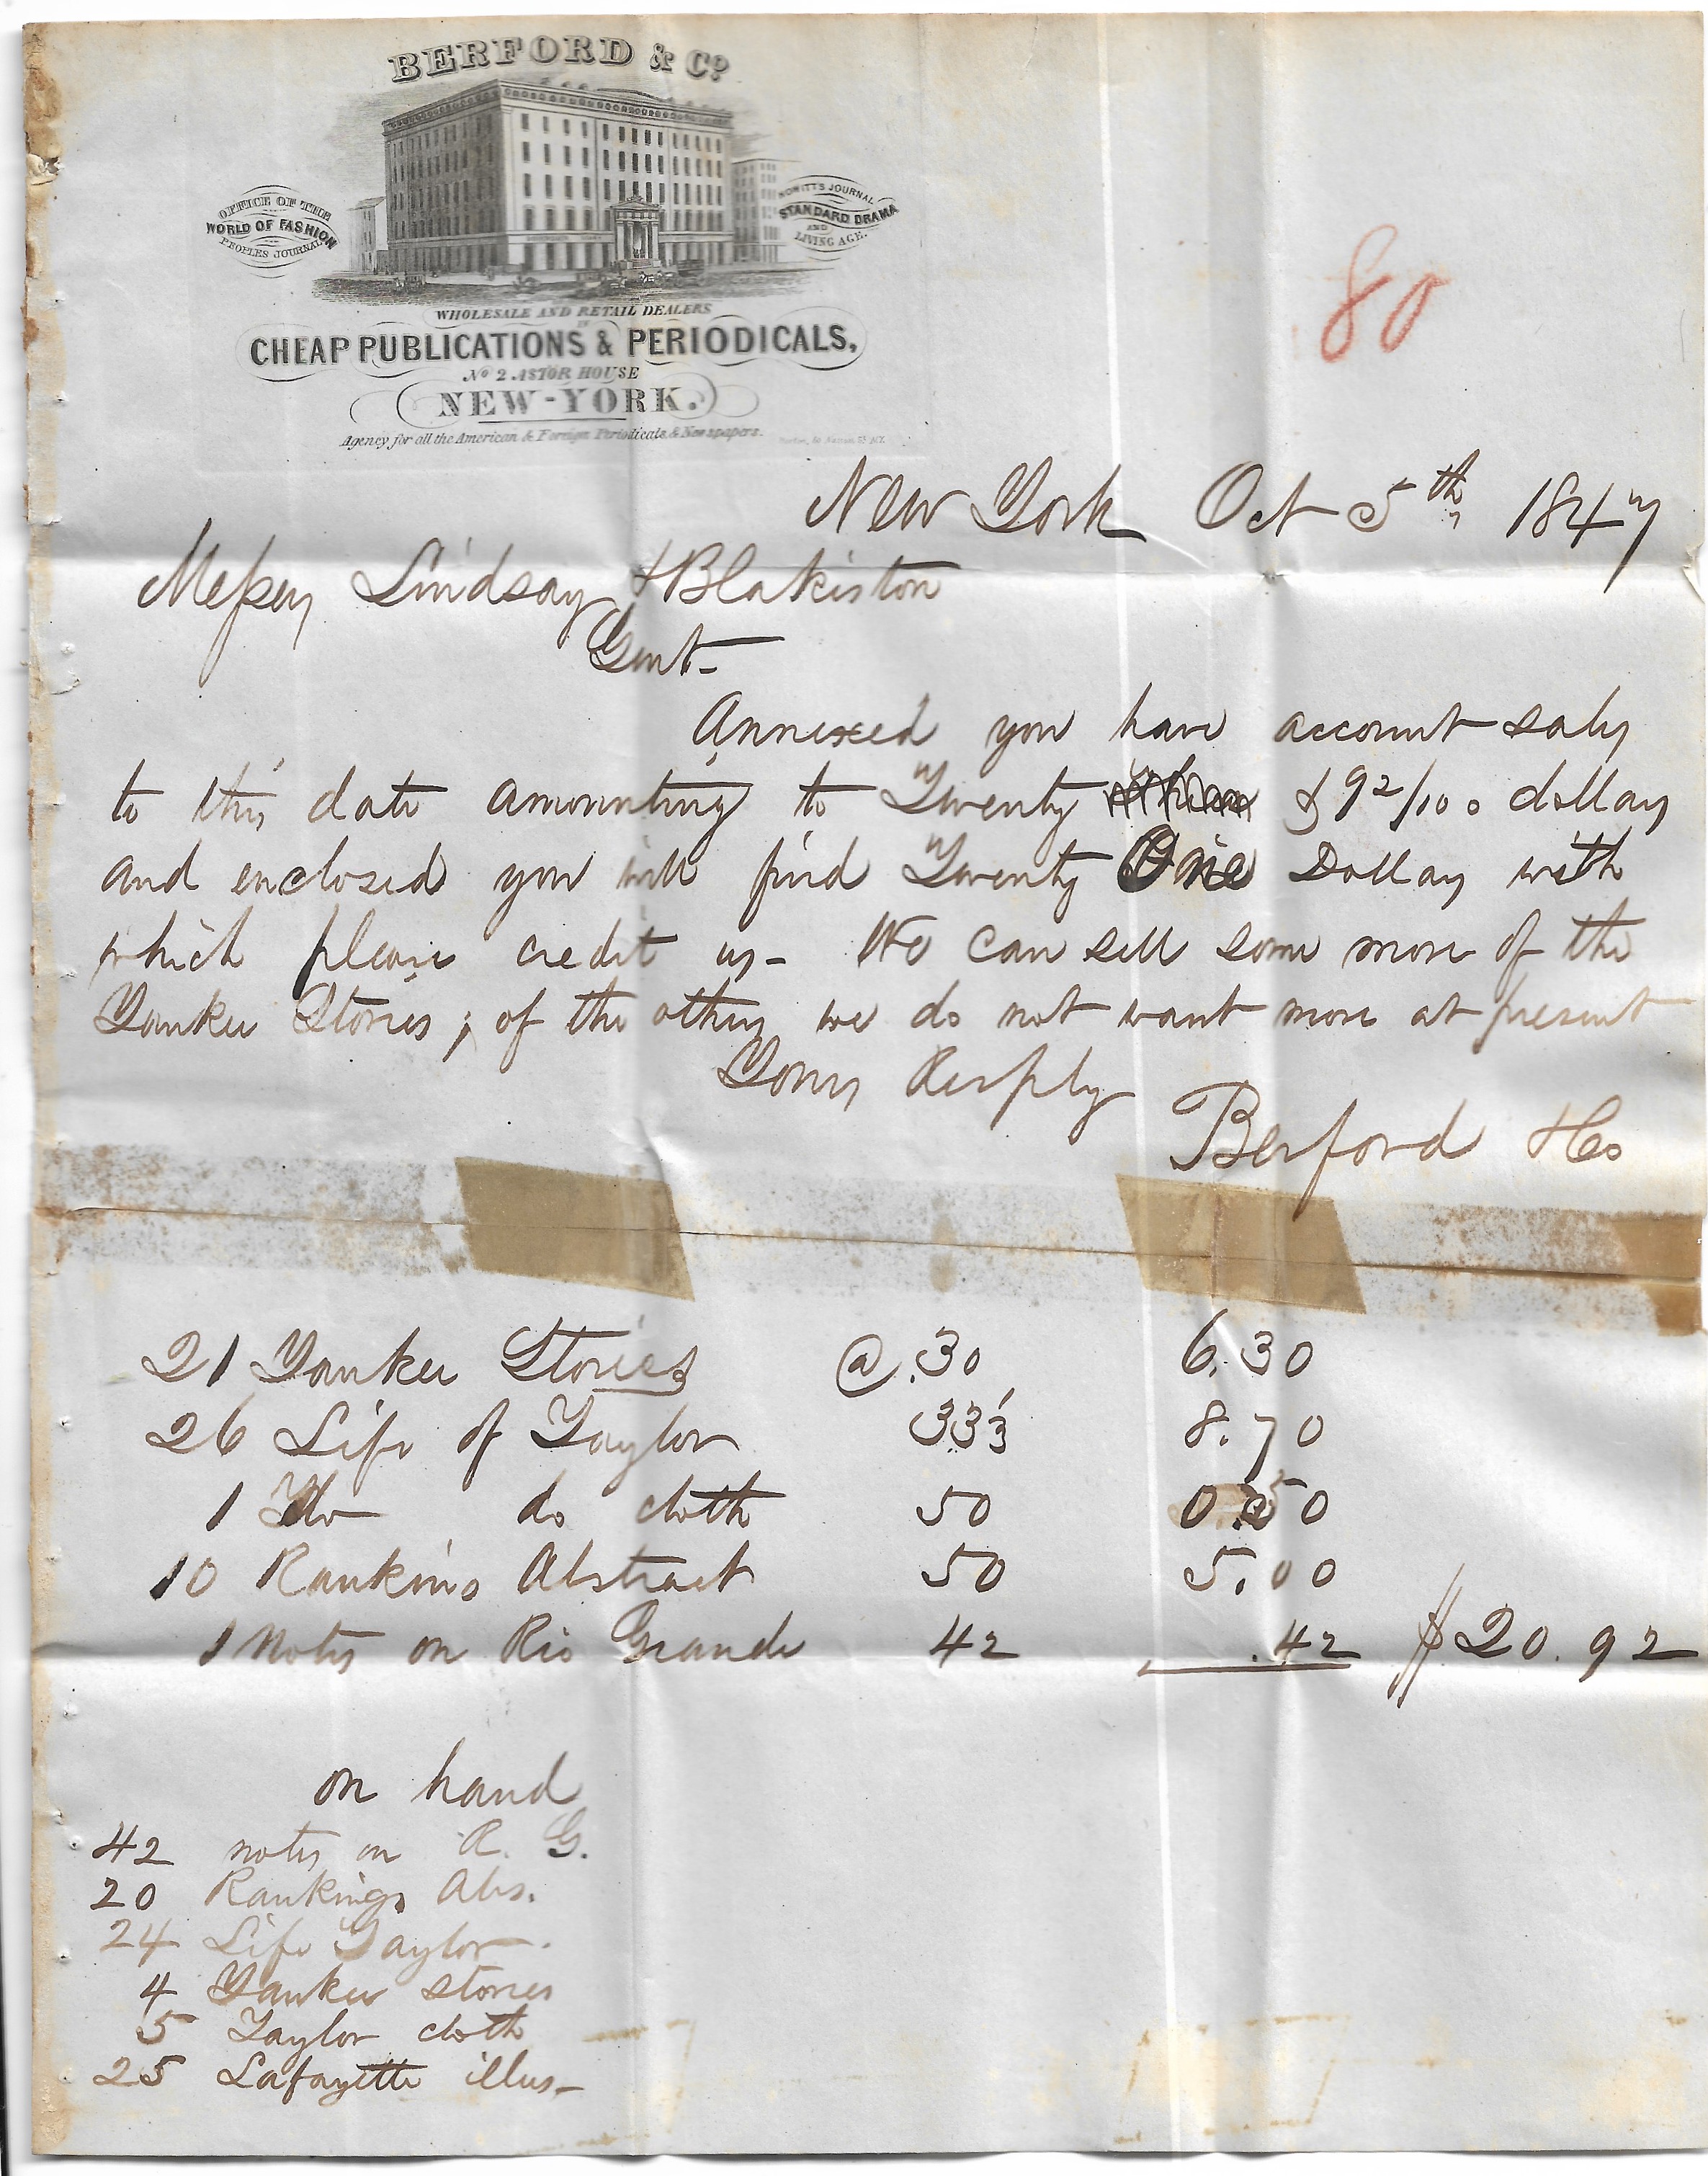 BERFORD & Co.
OFFICE OF THE
WORLD OF FASHION
PEOPLES JOURNAL
HOWITTS JOURNAL
STANDARD DRAMA
AND
LIVING AGE.
WHOLESALE AND RETAIL DEALERS
IN
CHEAP PUBLICATIONS & PERIODICALS,
No 2 ASTOR HOUSE
NEW-YORK.
Agency for all the American & Foreign Periodicals & Newspapers.
80
New York Oct 5th 1847
Messrs Lindsay & Blakiston
Gent-
Annexed you have account sales
to this date amounting to Twenty & 92/100 dollars
and enclosed you will find Twenty One Dollars with
which please credit us - We can sell some more of the
Yankee Stories; of the others we do not want more at present
Yours Respfly
Berford & Co
21 Yankee Stories @ .30 6.30
26 Life of Taylor 33⅓ 8.70
1 Do do cloth 50 0.50
10 Rankins Abstract 50 5.00
1 Notes on Rio Grande 42 .42 $20.92
on hand
42 notes on R. G.
20 Rankings Abs.
24 Life Taylor.
4 Yankee stories
5 Taylor cloth
25 Lafayette illus-